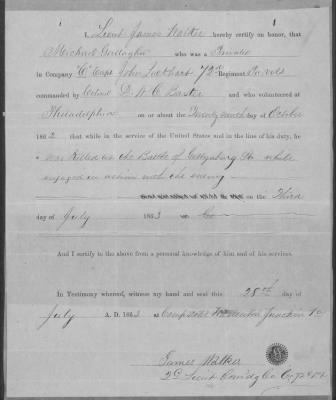 I, Lieut James Walker hereby certify on honor, that
Michael Gallagher who was a Private
in Company "C" Capt John Lockhart 72d Regiment Pa Vols
commanded by Colonel D. W. C. Baxter and who volunteered at
Philadelphia on or about the Twenty ninth day of October
1862 that while in the service of the United States and in the line of his duty, he
was Killed in the Battle of Gettysburg Pa while
engaged in action with the enemy
on the Third
day of July 1863
And I certify to the above from a personal knowledge of him and of his services.
In Testimony whereof, witness my hand and seal this 28th day of
July A. D. 1863 at Camp near Warrenton Junction Va
James Walker
2d Lieut Comdg Co C 72d P.V.